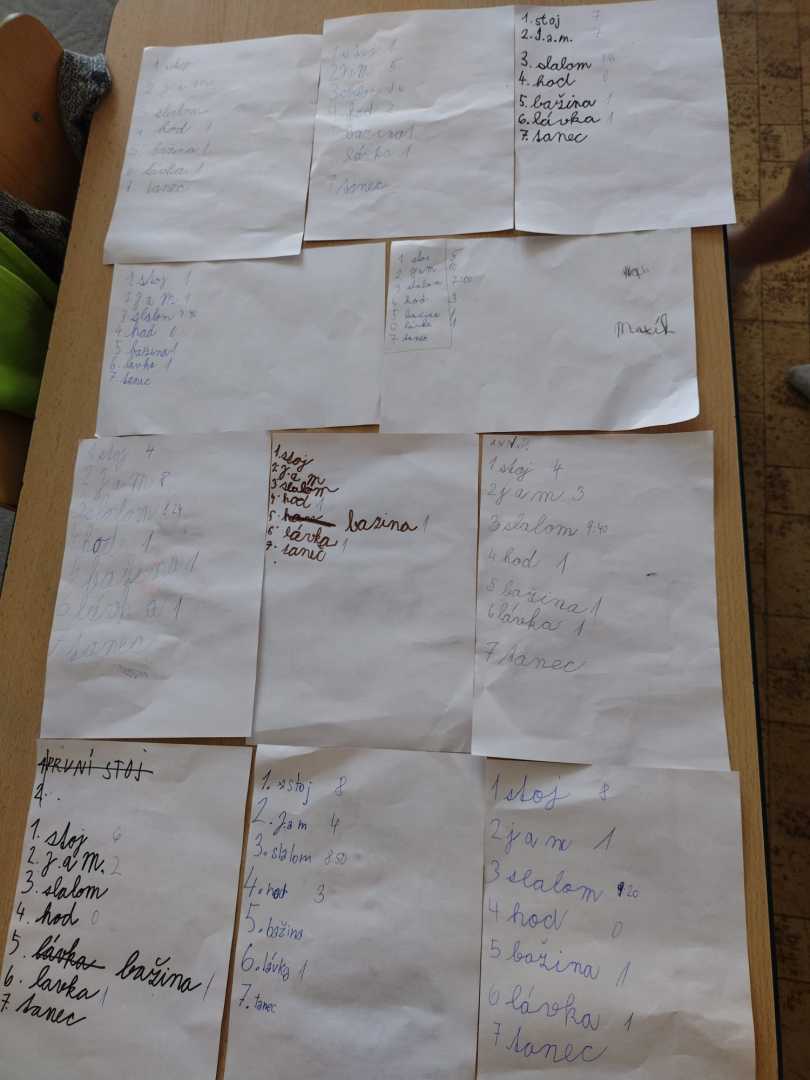 1 stoj
2 j a m
slalom
4 hod 1
5 bažina 1
6 lávka 1
7 tanec
1 stoj 1
2 j a m 5
3 slalom
4 hod 2
bažina 1
lávka 1
7 tanec
1. stoj 7
2. J.a.m. 7
3. slalom
4. hod 0
5. bažina 1
6. lávka 1
7. tanec
1 stoj 1
2 j a m. 1
3 slalom
4 hod 0
5 bažina 1
6. lávka 1
7. tanec
1 stoj 5
2 jam 6
3 slalom
4 hod 3
5 bažina 1
6 lávka 1
7 tanec
Maxík
1 stoj 4
2 j a m 8
slalom
4 hod 1
bažina 1
6 lávka 1
7 tanec
1 stoj
2 j.a m
3 slalom
4. hod 1
5. bazina 1
6. lávka 1
7. tanec
1 stoj 4
2 j a m 3
3 slalom 9:40
4 hod 1
5 bažina 1
6 lávka 1
7 tanec
PRVNÍ STOJ
2.
1. stoj 6
2. j.a m. 2
3. slalom
4. hod 0
5. lávka bažina 1
6. lavka 1
7. tanec
1. stoj 8
2. j.a m 4
3. slalom 8.50
4. hod 3
5. bažina
6. lávka 1
7. tanec
1 stoj 8
2 j a m 1
3 slalom 20
4 hod 0
5 bažina 1
6 lávka 1
7 tanec